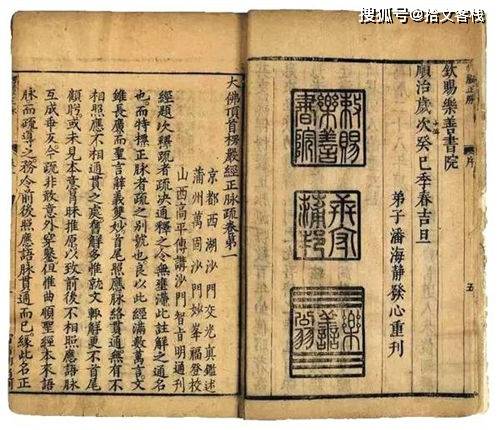 搜狐号@拾文客栈
欽賜樂善書院
順治歲次癸巳季春吉旦
弟子潘海靜發心重刊
敕賜樂善書院
樂善
序
五
大佛頂首楞嚴經正脉疏卷第一
京都西湖沙門交光真鑑述
蒲州萬固沙門妙峯福登校
山西高平傳講沙門智旨明通刊
經題次釋疏者疏決通釋之令無壅滯此註解之通名
也而特標正脉者疏之別號也良以此經滿數萬言文
雖長廣而聖言辭義雙妙首尾照應脉絡貫通無有不
相照應不相通貫之處舊解多惟就文輙解更不首尾
顧盼或未見本意旨昧推原以致前後不相照應語脉
互成乖反今疏非敢意外穿鑿但惟曲順聖經本來語
脉而疏導之務令前後照應語脉貫通而已緣此名正